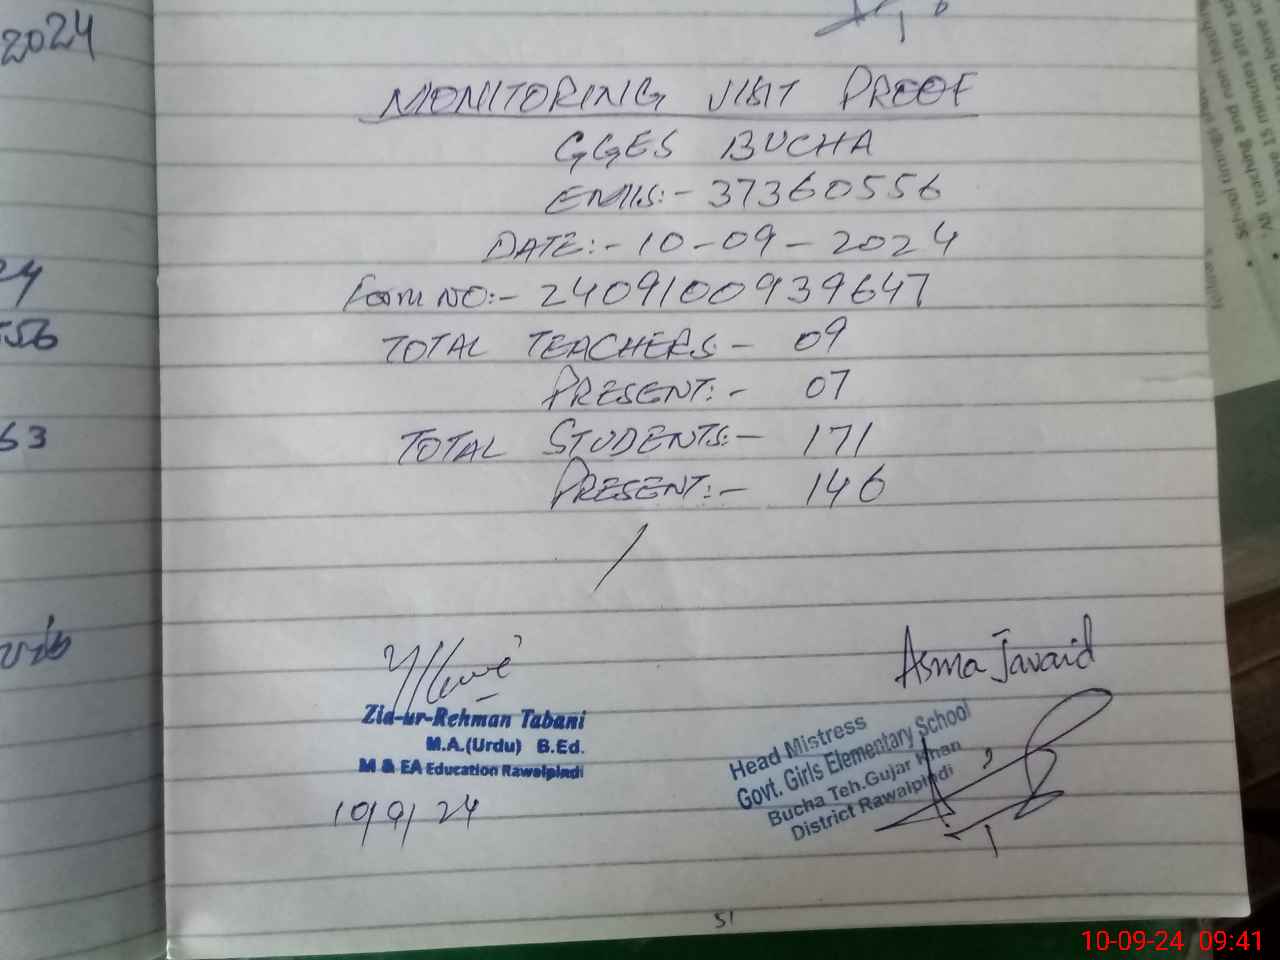 2024
24
556
63
MONITORING VISIT PROOF
GGES BUCHA
EMIS:- 37360556
DATE:- 10-09-2024
Form NO:- 2409100939647
TOTAL TEACHERS:- 09
PRESENT:- 07
TOTAL STUDENTS:- 171
PRESENT:- 146
Zia-ur-Rehman Tabani
M.A.(Urdu) B.Ed.
M & EA Education Rawalpindi
10/9/24
Asma Javaid
Head Mistress
Govt. Girls Elementary School
Bucha Teh.Gujar Khan
District Rawalpindi
51
School timings
All teaching and non teaching
15 minutes after
10-09-24 09:41